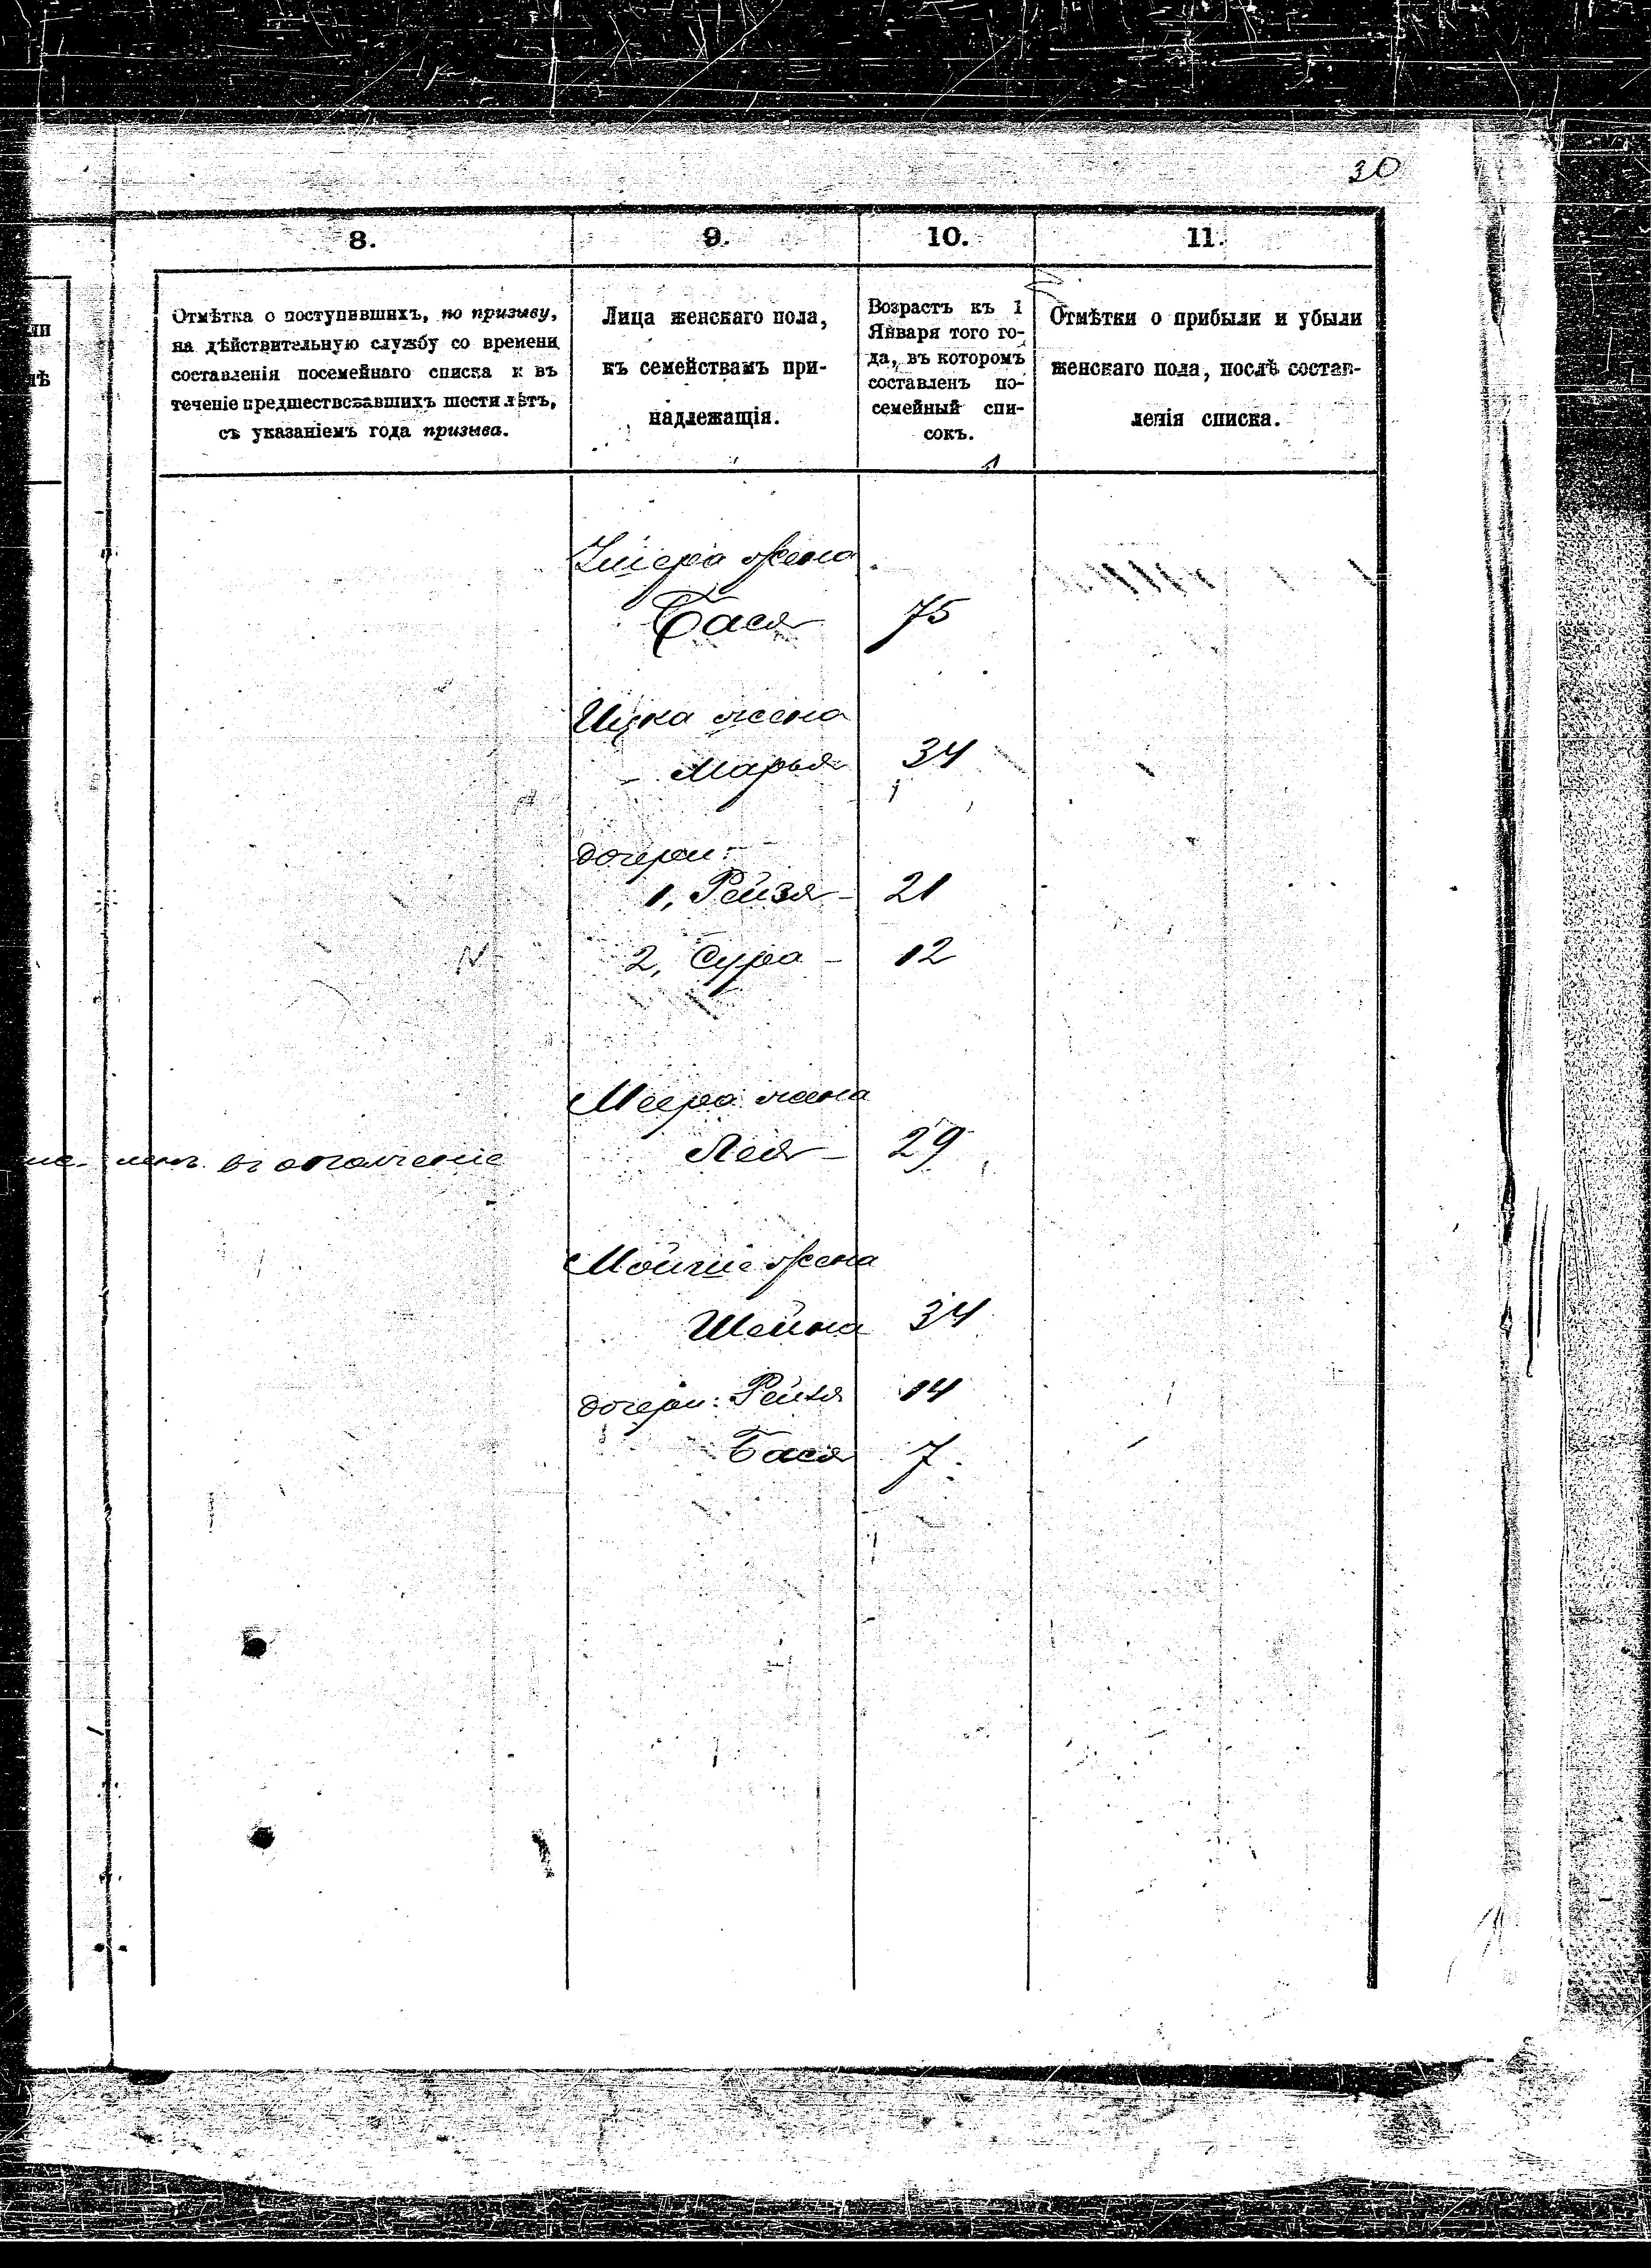 30
8.
9.
10.
11.
ли
лѣ
Отмѣтка о поступившихъ, по призыву,
на дѣйствительную службу со времени
составленія посемейнаго списка и въ
теченіе предшествовавшихъ шести лѣтъ,
съ указаніемъ года призыва.
Лица женскаго пола,
къ семействамъ при-
надлежащія.
Возрастъ къ 1
Января того го-
да, въ которомъ
составленъ по-
семейный спи-
сокъ.
Отмѣтки о прибыли и убыли
женскаго пола, послѣ состав-
ленія списка.
жена
Бася 75
Ицка жена
Марья 34
дочери:
1, Рейзя - 21
2, Сура - 12
Меера жена
Лея - 29
въ ополченіе
Мойше жена
Шейна 34
дочери: Рейзя 14
Бася 7.